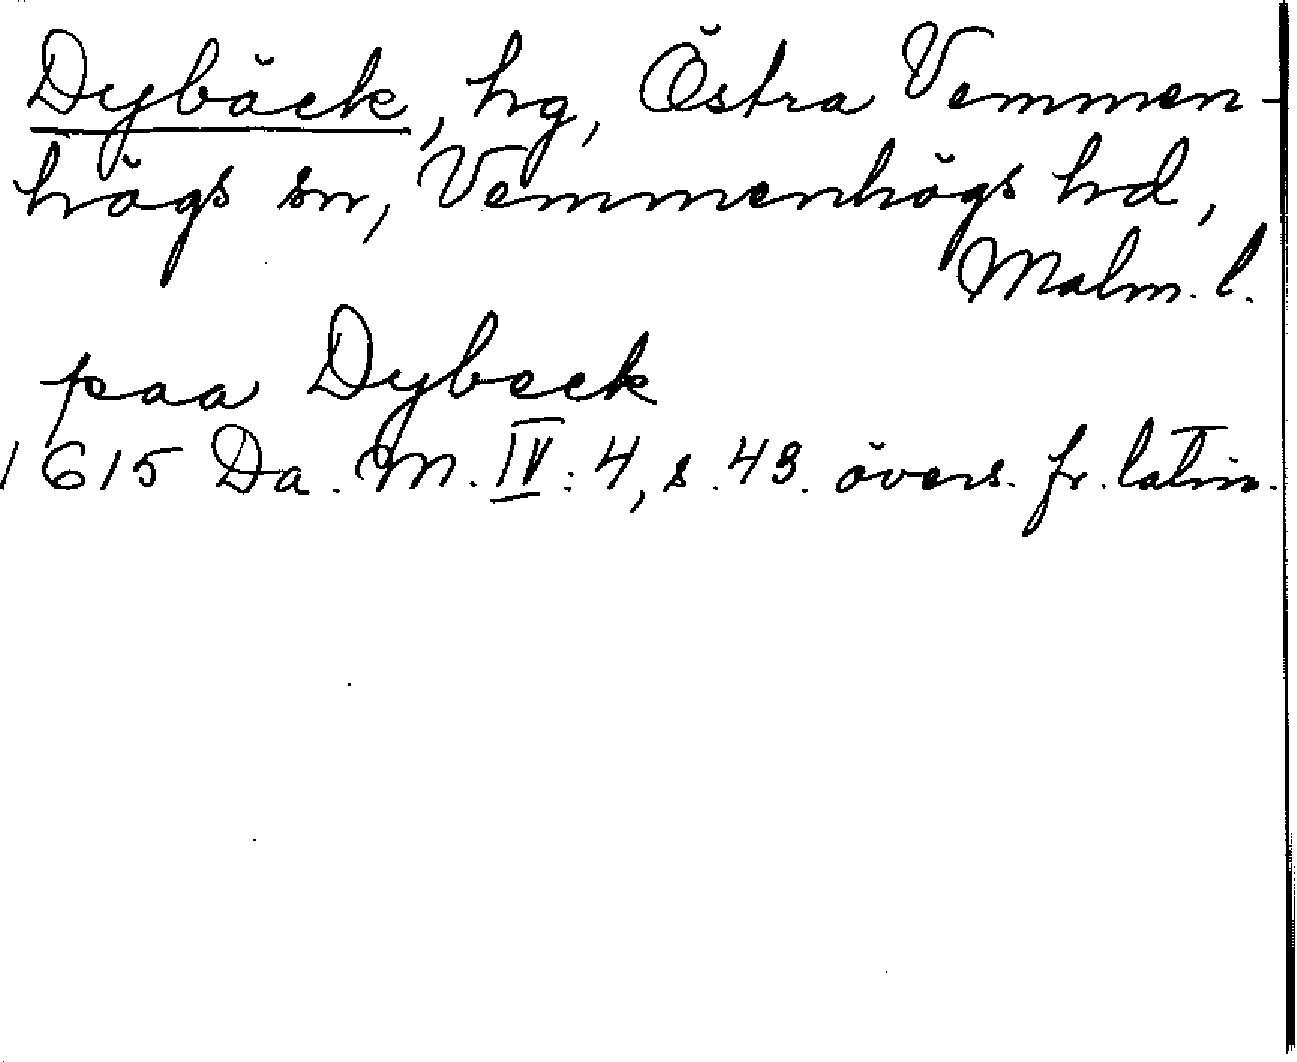 Dybäck, hg, Östra Vemmen-
högs sn, Vemmenhögs hd,
Malm. l.
paa Dybeck
1615 Da. M. IV: 4, s. 43. övers. fr. latin.